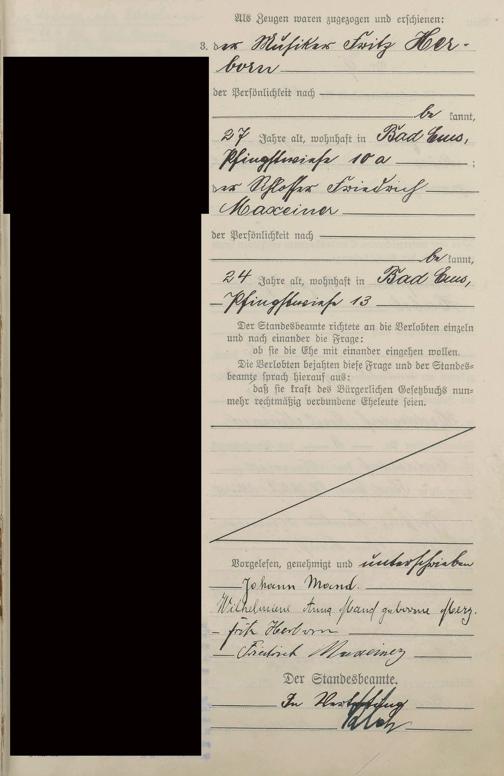 Als Zeugen waren zugezogen und erschienen:
3. der Musiker Fritz Her-
born
der Persönlichkeit nach
be kannt,
27 Jahre alt, wohnhaft in Bad Ems,
Pfingstwiese 10 a ;
der Schlosser Friedrich
Maxeiner
der Persönlichkeit nach
be kannt,
24 Jahre alt, wohnhaft in Bad Ems,
Pfingstwiese 13
Der Standesbeamte richtete an die Verlobten einzeln
und nach einander die Frage:
ob sie die Ehe mit einander eingehen wollen.
Die Verlobten bejahten diese Frage und der Standes-
beamte sprach hierauf aus:
daß sie kraft des Bürgerlichen Gesetzbuchs nun-
mehr rechtmäßig verbundene Eheleute seien.
Vorgelesen, genehmigt und unterschrieben
Johann Mand.
Wilhelmine Anna Mand geborene Merz.
Fritz Herborn
Friedrich Maxeiner
Der Standesbeamte.
In Vertretung